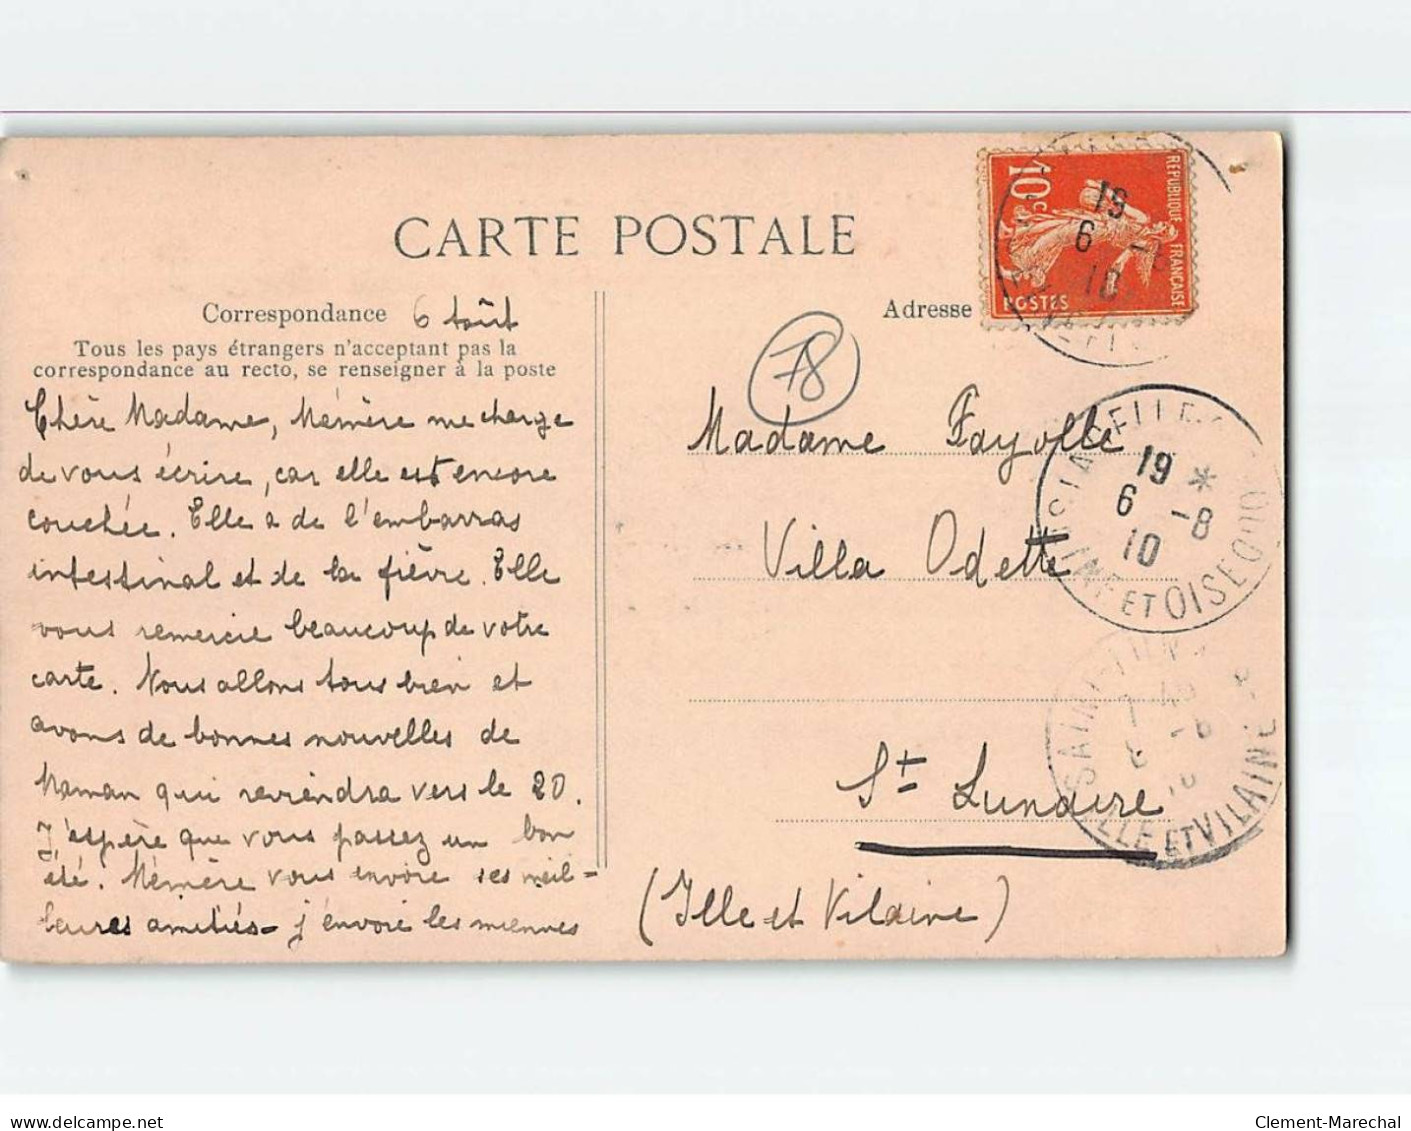 CARTE POSTALE
10c
REPUBLIQUE FRANÇAISE
POSTES
19
6 -8
10
Correspondance 6 Août
Tous les pays étrangers n'acceptant pas la
correspondance au recto, se renseigner à la poste
Chère Madame, Mémère me charge
de vous écrire, car elle est encore
couchée. Elle a de l'embarras
intestinal et de la fièvre. Elle
vous remercie beaucoup de votre
carte. Nous allons tous bien et
avons de bonnes nouvelles de
Maman qui reviendra vers le 20.
J'espère que vous passez un bon
été. Mémère vous envoie ses meil-
leures amitiés - j'envoie les miennes
Adresse
78
Madame Fayolle
Villa Odette
St Lunaire
(Ille et Vilaine)
19 *
6 -8
10
ET OISE
ILLE ET VILAINE
delcampe.net
Clement-Marechal